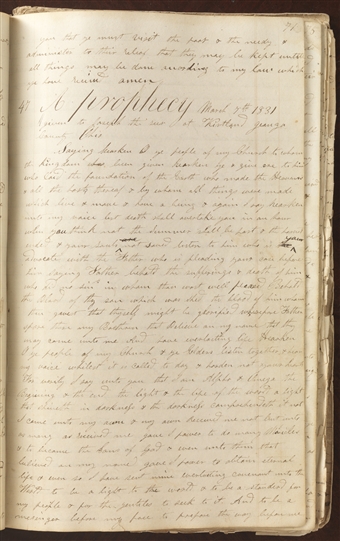 you that ye must visit the poor & the needy &
administer to their relief that they may be kept until
all things may be done according to my law which
ye have received amen
A prophecy March 7th 1831
given to Joseph the seer at Kirtland Geauga
County Ohio
Saying Hearken O ye people of my Church to whom
the kingdom has been given hearken ye & give ear to him
who laid the foundation of the Earth who made the Heavens
& all the hosts thereof & by whom all things were made
which live & move & have a being & again I say hearken
unto my voice lest death shall overtake you in an hour
when you think not the summer shall be past & the harvest
ended & your souls not saved listen to him who is your
advocate with the Father who is pleading your cause before
him saying Father behold the sufferings & death of him
who did no sin in whom thou wast well pleased Behold
the blood of thy son which was shed the blood of him whom
thou gavest that thyself might be glorified wherefore Father
spare these my Brethren that believe on my name that they
may come unto me And have everlasting life Hearken
O ye people of my Church & ye Elders listen together & hear
my voice whilest it is called to day & harden not your hearts
For verily I say unto you that I am Alpha & Omega the
begining & the end the light & the life of the world a light
that shineth in darkness & the darkness comprehendeth it not
I came unto my own & my own received me not but unto
as many as received me gave I power to do many Miracles
& to become the Sons of God & even unto them that
believed on my name gave I power to obtain eternal
life & even so I have sent mine everlasting covenant unto the
World to be a light to the world & to be a standard for
my people & for the gentiles to seek to it And to be a
messenger before my face to prepare the way before me